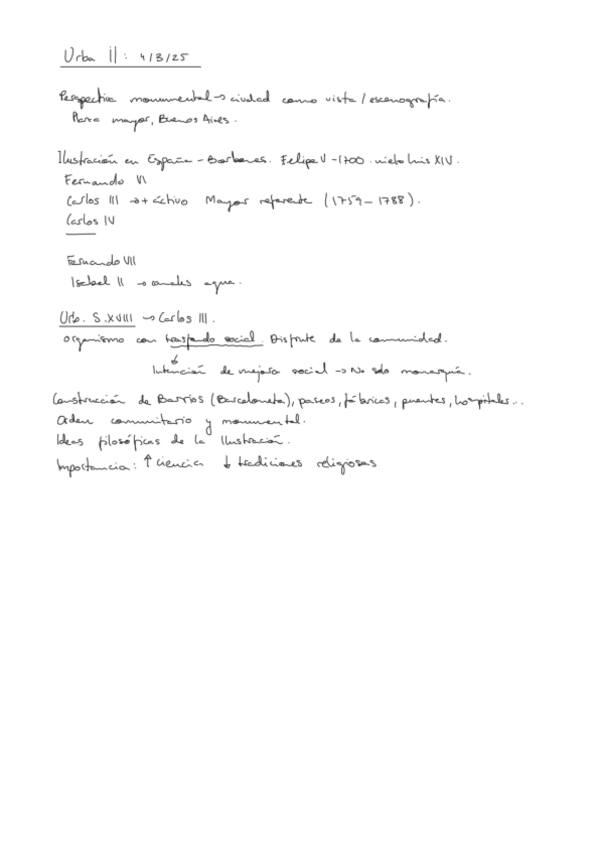 Urba II: 4/3/25
Perspectiva monumental → ciudad como vista / escenografía.
Plaza mayor, Buenos Aires.
Ilustración en España - Borbones. Felipe V - 1700. nieto Luis XIV.
Fernando VI
Carlos III → + activo Mayor referente (1759 - 1788).
Carlos IV
Fernando VII
Isabel II → canales agua.
Urb. S.XVIII → Carlos III.
organismo con trasfondo social. Disfrute de la comunidad.
Intención de mejora social → No solo monarquía.
Construcción de Barrios (Barceloneta), paseos, fábricas, puentes, hospitales...
Orden comunitario y monumental.
Ideas filosóficas de la Ilustración.
Importancia: ↑ ciencia ↓ tradiciones religiosas